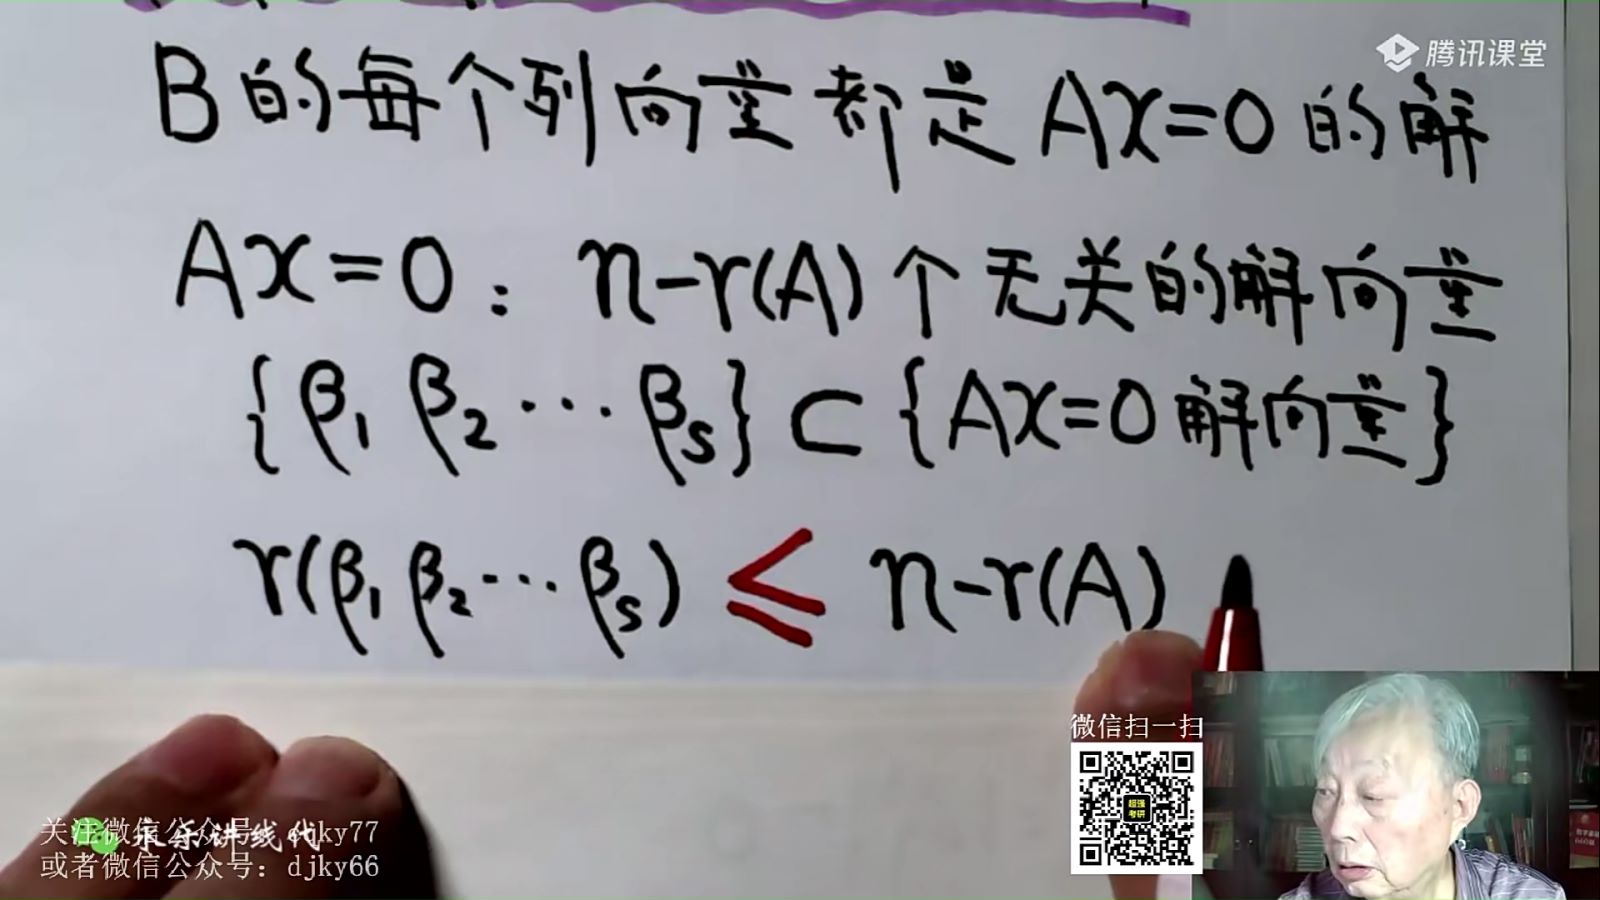 腾讯课堂
B的每个列向量都是 Ax=0 的解
Ax=0: n-r(A)个无关的解向量
{β₁ β₂ ⋯ βₛ} ⊂ {Ax=0 解向量}
r(β₁ β₂ ⋯ βₛ) ≤ n-r(A)
微信扫一扫
超强
考研
关注微信公众号: djky77
永乐讲线代
或者微信公众号: djky66